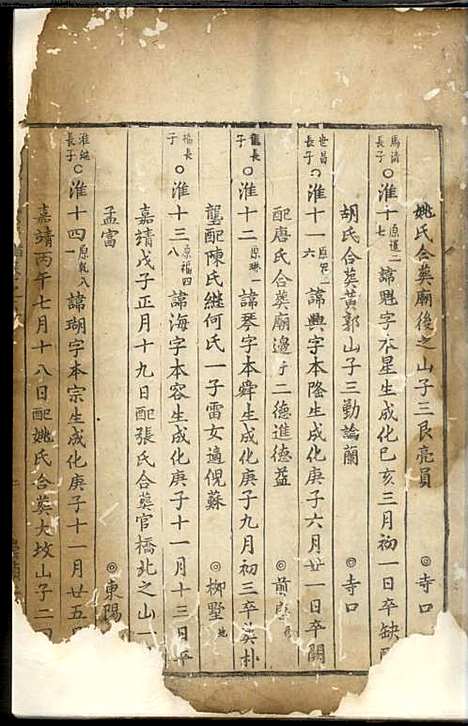 姚氏合葬廟後之山子三良亮員 ◎寺口
馬清長子 ○淮十七 原道二 諱魁字本星生成化己亥三月初一日卒缺配
胡氏合葬黃郭山子三勤論蘭 ◎寺口
世昌長子 ○淮十一六 諱興字本隆生成化庚子六月廿一日卒闕
配唐氏合葬廟邊子二德進德益 ◎前唐
龍長子 ○淮十二 原琳一 諱琴字本舜生成化庚子九月初三卒葬朴
壟配陳氏継何氏一子雷女適倪蘇 ◎柳墅
福長子 ○淮十三八 原福四 諱海字本容生成化庚子十一月十三日卒
嘉靖戊子正月十九日配張氏合葬官橋北之山一
孟富 ◎東陽
淮継長子 ○淮十四 原乾八 諱瑚字本宗生成化庚子十一月廿五
嘉靖丙午七月十八日配姚氏合葬大坟山子二